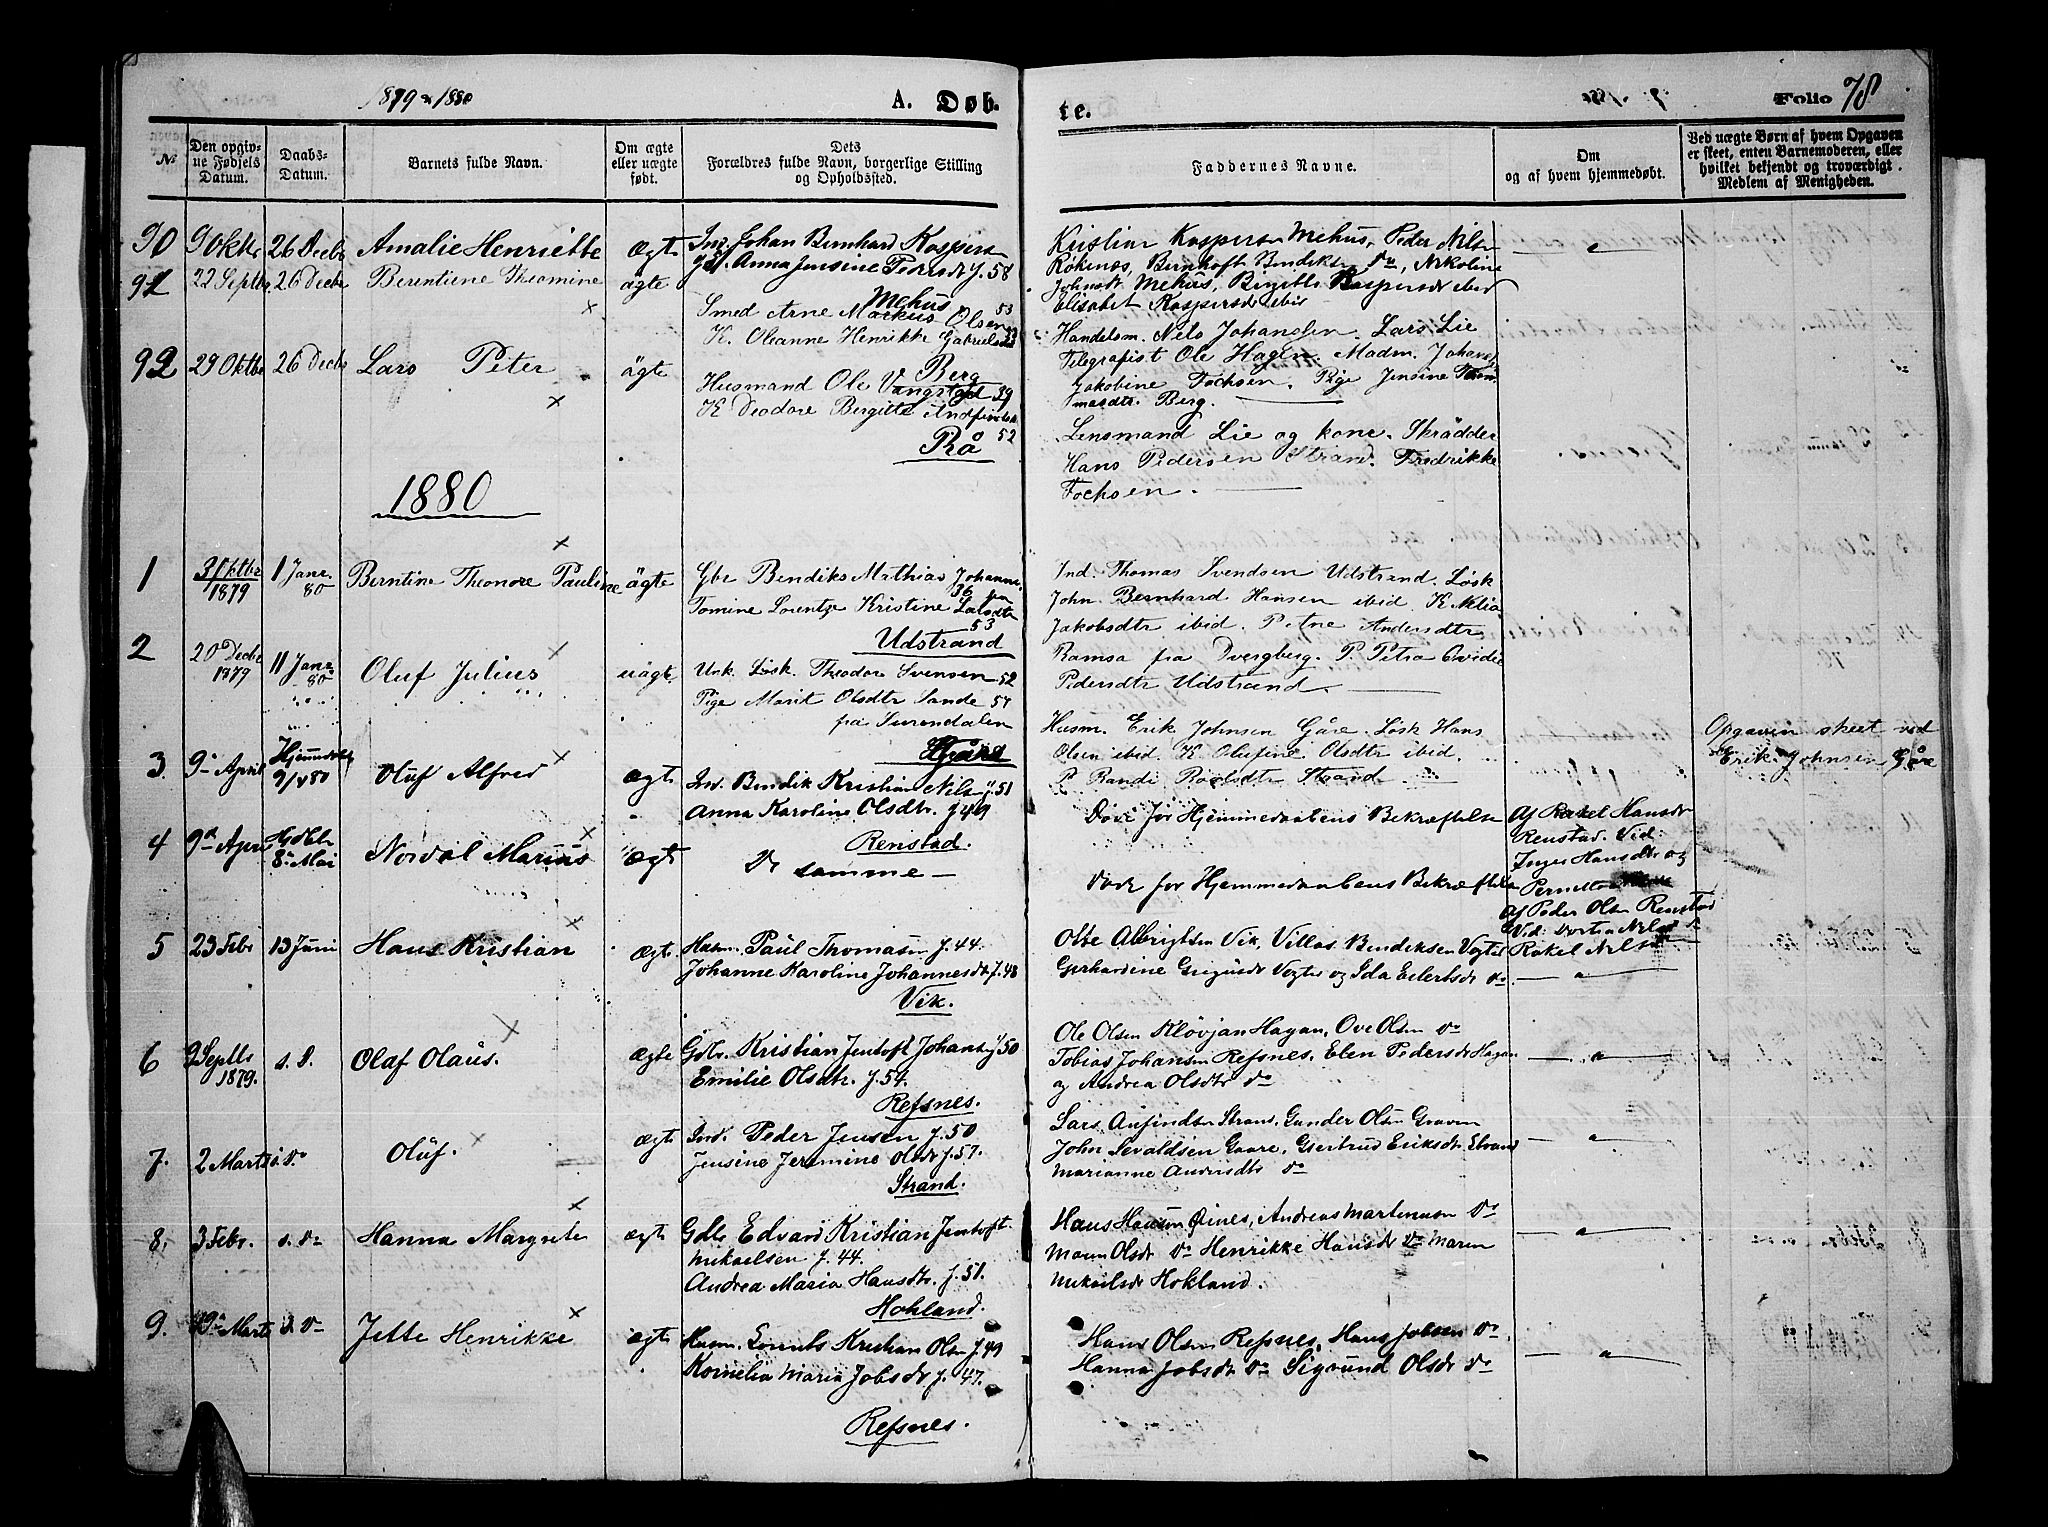 1879 & 1880 A. Døb-
№
Den opgivne Fødsels Datum.
Daabs-Datum.
Barnets fulde Navn.
Om ægte eller uægte født.
Dets Forældres fulde Navn, borgerlige Stilling og Opholdssted.
90 9 Oktbr 26 Decbr Amalie Henriette ægte Ind. Johan Bernhard Kaspers
Anna Jensine Pedersdr f. 58
Mehus
91 22 Septbr 26 Decbr Berentiene Thomine ægte
Smed Arne Markus Olsen 53
K. Oleanne Henrikke Gabrielsd 53
Berg
92 29 Oktbr 26 Decbr Lars Peter ägte
Husmand Ole Vangstad 39
K Deodore Bergitte 52
Rå
1880
1 3 Oktbr 1879 1 Janr. 80 Berntine Theonore Pauline ägte Gbr Bendiks Mathias Johanne
36
Tomine Lorentze Kristine Larsdtr
53
Udstrand
2 20 Decbr 1879 11 Janr. 80 Oluf Julius uägte Unk. Løsk. Theodor Svensen 52
Pige Marit Olsdtr Sande 54
fra Surendalen
Gjåre
3. 9de April 9/4 80 Oluf Alfred ægte Ind. Bendik Kristian Nilsen f. 51
Anna Karoline Olsdtr. f 49
Renstad.
4 9de April 8de Mai Nordal Marius ægte De samme —
5 23 Febr 13 Juni Hans Kristian ægte Husm. Paul Thomasen f. 44.
Johanne Karoline Johannesdtr f. 48
Vik.
6 9 Septbr 1879. s. D. Olaf Olaus. ægte Gdbr. Kristian Jentoft Johans f 50
Emilie Olsdtr. f. 54.
Refsnes.
7. 2 Marts s. Do Oluf. ægte Ind. Peder Jensen f. 50
Jensine Jermine Olsdr f. 57.
Strand.
8. 3 Febr. s. Do Hanna Margrete ægte Gdbr Edvard Kristian Jentoft
Mikaelsen f. 44.
Andrea Maria Hansdtr. f. 51.
Hokland.
9. Marts s Do Jette Henrikke ægte Husm. Lorents Kristian Olsen f. 49
Kornelia Maria Jobsdr f. 47.
Refsnes.
te. Folio 78
Faddernes Navne.
Om og af hvem hjemmedøbt.
Ved uægte Børn af hvem Opgaven er skeet, enten Barnemoderen, eller hvilket bekjendt og troværdigt Medlem af Menigheden.
Kristian Kaspersen Mehus, Peder Nilsen
Røkenes, Bernhoft Bendiksen Do, Nikoline
Johnsdr Mehus, Birgitte Kaspersdr ibid
Elisabet Kaspersdr ibid
Handelsm. Nels Johansen. Lars Lie
Telegrafist Ole Hagen. Madm. Johans
Jakobine Fochsen. Pige Jensine Thom
masdtr. Berg.
Lensmand Lie og kone. Skrädder
Hans Pedersen Strand. Fredrikke
Fochsen.
Ind. Thomas Svendsen Udstrand. Løsk
John. Bernhard Hansen ibid. K.
Jakobsdtr ibid. Petne Andersdtr
Ramsa fra Dvergberg. P. Petra Ovidie
Pedersdtr Udstrand.
Husm. Erik Johnsen Gåre. Løsk Hans
Olsen ibid. K Olufine Olsdtr ibid.
P. Randi Strand
Opgaven skeet ved
Erik Johnsen Gåre
Døde før Hjemmedaabens Bekræftelse Af Rakel Hansdr
Renstad. Vid:
Inger Hansdtr og
døde før Hjemmedaabens Bekræftelse
Af Peder Olsen Renstad
Rakel Nilsd
Olve Albrigtsen Vik, Villas Bendiksen Vogtes
Gerhardine Vogtes og Ida Eilertsdr Do.
Ole Olsen Kløvjan Hagan, Ove Olsen Do
Tobias Johansen Refsnes. Elen Pedersdr Hagan
og Andrea Olsdtr Do
Lars Anfindsen Strand. Gunder Olsen Graven
John Sevaldsen Gaare. Gjertrud Eriksdr Strand
Marianne Andersdtr Do
Hans Hansen Øines, Andreas Martenusen Do
Maren Olsdr Do Henrikke Hansdr Do Maren
Mikaelsdr Hokland.
Hans Olsen Refsnes, Hans Jobsen Do.
Hanna Jobsdr Do Sigrund Olsdr Do